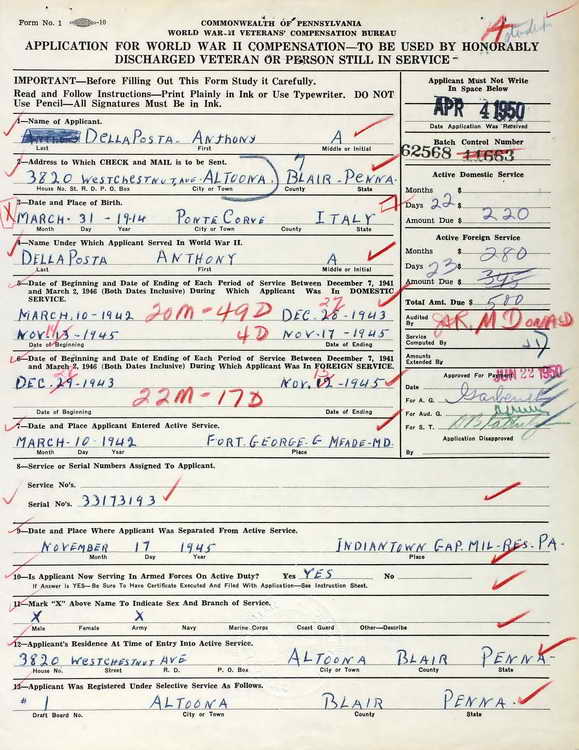 Form No. 1 -10
COMMONWEALTH OF PENNSYLVANIA
WORLD WAR II VETERANS' COMPENSATION BUREAU
APPLICATION FOR WORLD WAR II COMPENSATION—TO BE USED BY HONORABLY
DISCHARGED VETERAN OR PERSON STILL IN SERVICE
IMPORTANT—Before Filling Out This Form Study it Carefully.
Read and Follow Instructions—Print Plainly in Ink or Use Typewriter. DO NOT
Use Pencil—All Signatures Must Be in Ink.
Applicant Must Not Write
In Space Below
APR 4 1950
Date Application Was Received
1—Name of Applicant.
DELLAPOSTA ANTHONY A
Last First Middle or Initial
Batch Control Number
62568 11663
2—Address to Which CHECK and MAIL is to be Sent.
3820 WESTCHESTNUT AVE ALTOONA BLAIR - PENNA.
House No. St. R. D. P. O. Box City or Town County State
Active Domestic Service
Months $
Days 22 $
Amount Due $ 220
3—Date and Place of Birth.
X MARCH - 31 - 1914 PONTE CORVE ITALY
Month Day Year City or Town County State
4—Name Under Which Applicant Served In World War II.
DELLAPOSTA ANTHONY A
Last First Middle or Initial
Active Foreign Service
Months $ 280
Days 23 $
Amount Due $ 345
Total Amt. Due $ 500
5—Date of Beginning and Date of Ending of Each Period of Service Between December 7, 1941
and March 2, 1946 (Both Dates Inclusive) During Which Applicant Was In DOMESTIC
SERVICE.
MARCH-10-1942 20M-49D DEC-28-1943
27
NOV-13-1945 4D NOV-17-1945
14
Date of Beginning Date of Ending
Audited By
Service Computed By
Amounts Extended By
6—Date of Beginning and Date of Ending of Each Period of Service Between December 7, 1941
and March 2, 1946 (Both Dates Inclusive) During Which Applicant Was In FOREIGN SERVICE.
28 13
DEC-29-1943 NOV-12-1945
22M-17D
Date of Beginning Date of Ending
Approved For Payment
JUN 22 1950
Date
For A. G.
For Aud. G.
For S. T.
7—Date and Place Applicant Entered Active Service.
MARCH-10-1942 FORT. GEORGE-G MEADE-MD.
Month Day Year Place
Application Disapproved
By
8—Service or Serial Numbers Assigned To Applicant.
Service No's.
Serial No's. 33173193
9—Date and Place Where Applicant Was Separated From Active Service.
NOVEMBER 17 1945 INDIANTOWN GAP. MIL-RES. PA-
Month Day Year Place
10—Is Applicant Now Serving In Armed Forces On Active Duty? Yes YES No
If Answer Is YES—Be Sure To Have Certificate Executed And Filed With Application—See Instruction Sheet.
11—Mark "X" Above Name To Indicate Sex and Branch of Service.
X X
Male Female Army Navy Marine Corps Coast Guard Other—Describe
12—Applicant's Residence At Time of Entry Into Active Service.
3820 WESTCHESTNUT AVE ALTOONA BLAIR PENNA-
House No. Street R. D. P. O. Box City or Town County State
13—Applicant Was Registered Under Selective Service As Follows.
# 1 ALTOONA BLAIR PENNA.
Draft Board No. City or Town County State